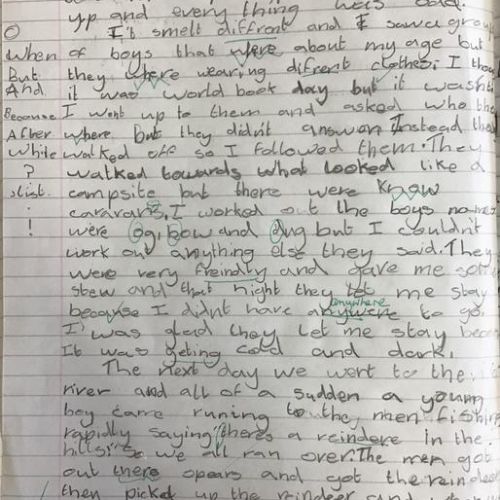 up and every thing was odd.
O It's smelt diffront and I saw a grou
When of boys that where about my age but
But they where wearing difrent clothes, I thou
And it was world book day but it wasnt
Because I went up to them and asked who the
After where but they didn't answer Instead the
While walked off so I followed them. They
? walked towards what looked like a
list. campsite but there were know
. caravans, I worked out the boys names
! were Og, bow and dug but I couldn't
work out anything else they said. They
were very freindly and gave me som
stew and that night they let me stay
anywhere
because I didnt have anywere to go,
I was glad they let me stay beca
It was geting cold and dark.
The next day we went to the
river and all of a sudden a young
boy came runing to the men fishing
rapidly saying theres a reindere in the
hills so we all ran over. The men got
out there spears and got the reindee
then picked up the reindeer and